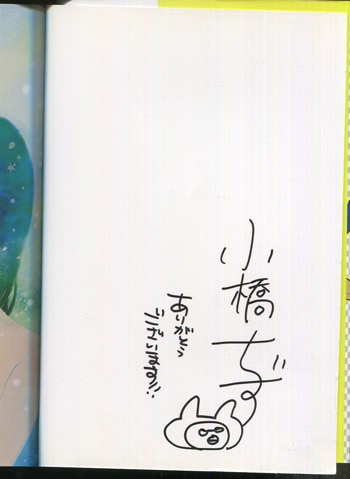 小橋ちず
ありがとう
ございます!!